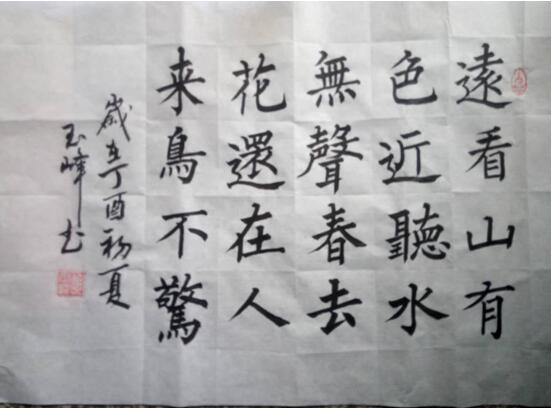 遠看山有
色近聽水
無聲春去
花還在人
来鳥不驚
歲在丁酉初夏
玉峰书